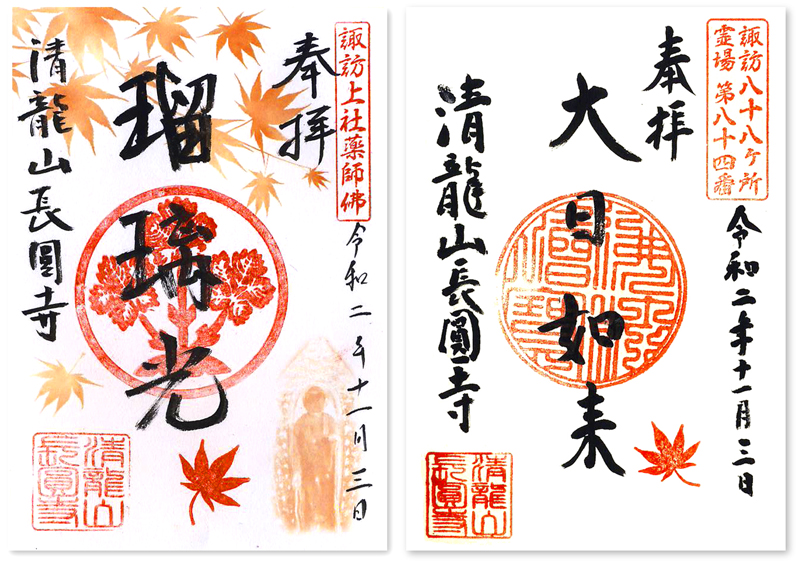 諏訪上社薬師佛
奉拝
令和二年十一月三日
瑠璃光
清龍山長圓寺
清龍山
長圓寺
諏訪八十八ヶ所
霊場第八十四番
奉拝
令和二年十一月三日
大日如来
清龍山長圓寺
清龍山
長圓寺